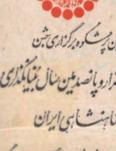 پرشکوه برگزاری جشن
هزار و پانصدمین سال بنیانگذاری
شاهنشاهی ایران